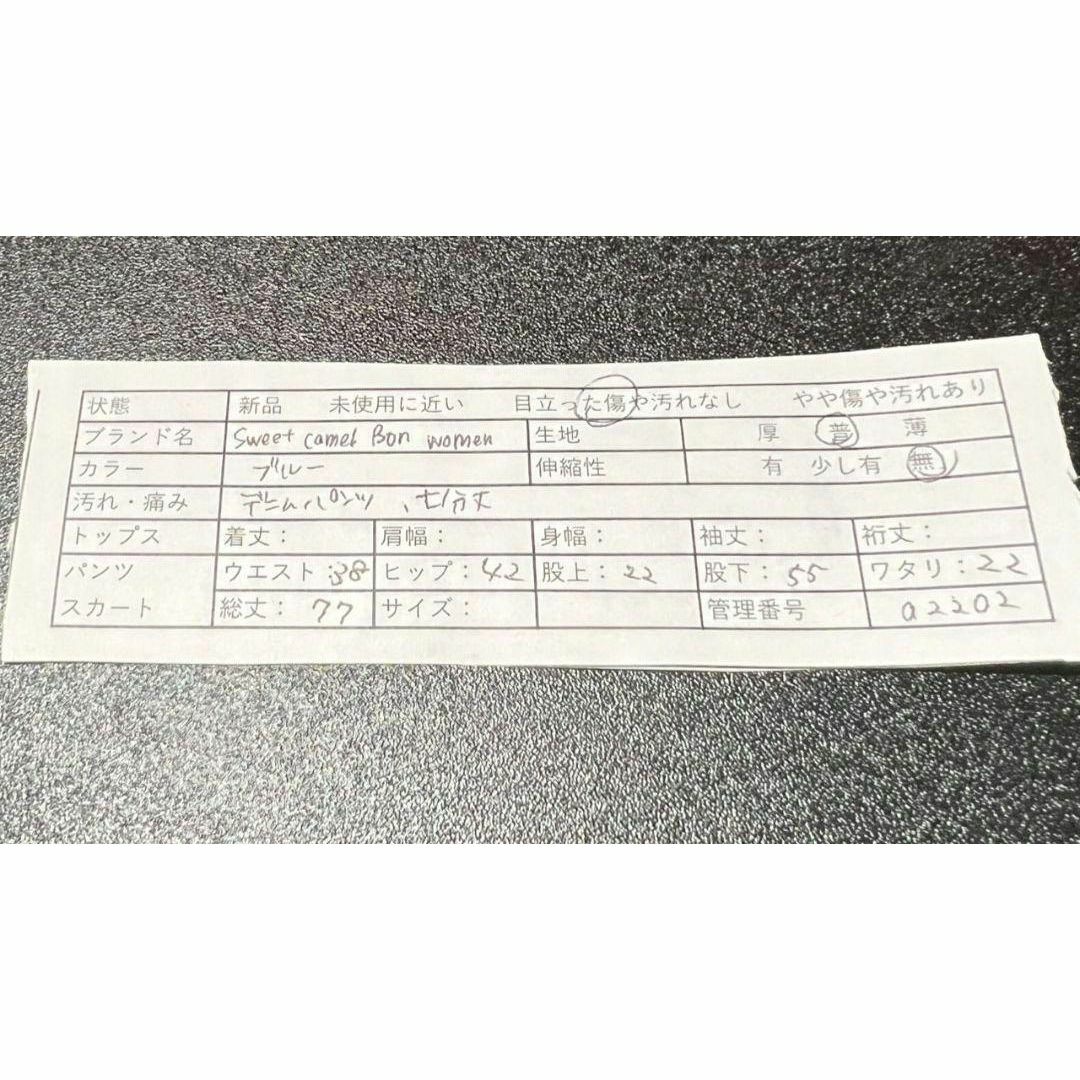 状態 新品 未使用に近い 目立った傷や汚れなし やや傷や汚れあり
ブランド名 Sweet camel Bon women 生地 厚 普 薄
カラー ブルー 伸縮性 有 少し有 無
汚れ・痛み デニムパンツ、七分丈
トップス 着丈： 肩幅： 身幅： 袖丈： 裄丈：
パンツ ウエスト：38 ヒップ：42 股上：22 股下：55 ワタリ：22
スカート 総丈：77 サイズ： 管理番号 a2202